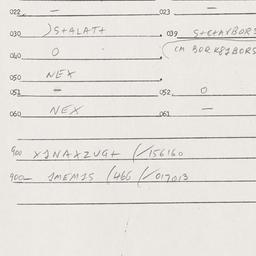 022 — 023 —
030 )S+ALAT+ 039 S+C+AYBORS
040 O (M BORK8JBORS
050 NEX
051 — 052 O
060 NEX 061 —
900 XJNAXZUG+ (/156160
900— JMEMJS (466 (/017013